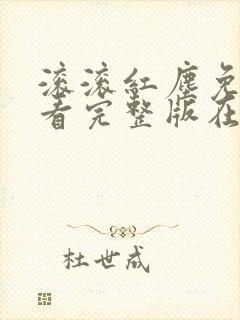 滚滚红尘免
看完整版在
杜世成